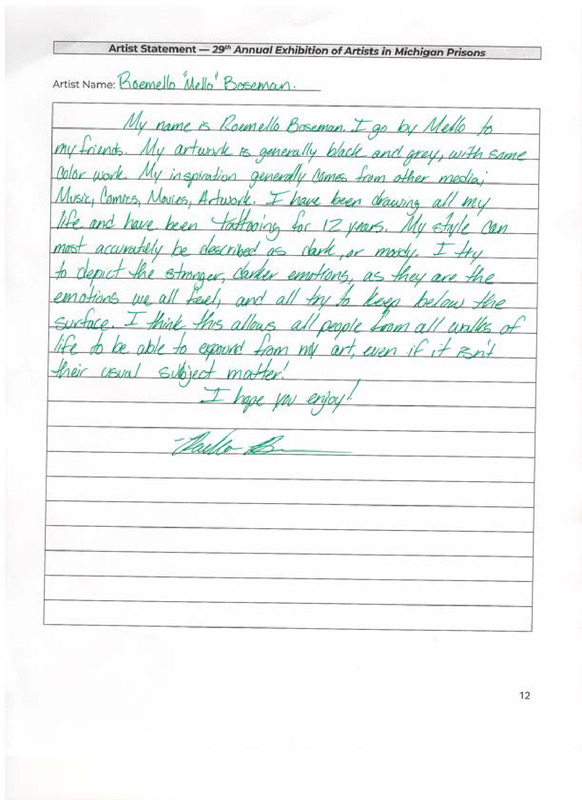 Artist Statement — 29th Annual Exhibition of Artists in Michigan Prisons
Artist Name: Roemello "Mello" Boseman.
My name is Roemello Boseman. I go by Mello to
my friends. My artwork is generally black and grey, with some
color work. My inspiration generally comes from other media;
Music, Comics, Movies, Artwork. I have been drawing all my
life and have been tattooing for 12 years. My style can
most accurately be described as dark, or moody. I try
to depict the stronger, darker emotions, as they are the
emotions we all feel, and all try to keep below the
surface. I think this allows all people from all walks of
life to be able to expound from my art, even if it isn't
their usual subject matter!
I hope you enjoy!
12